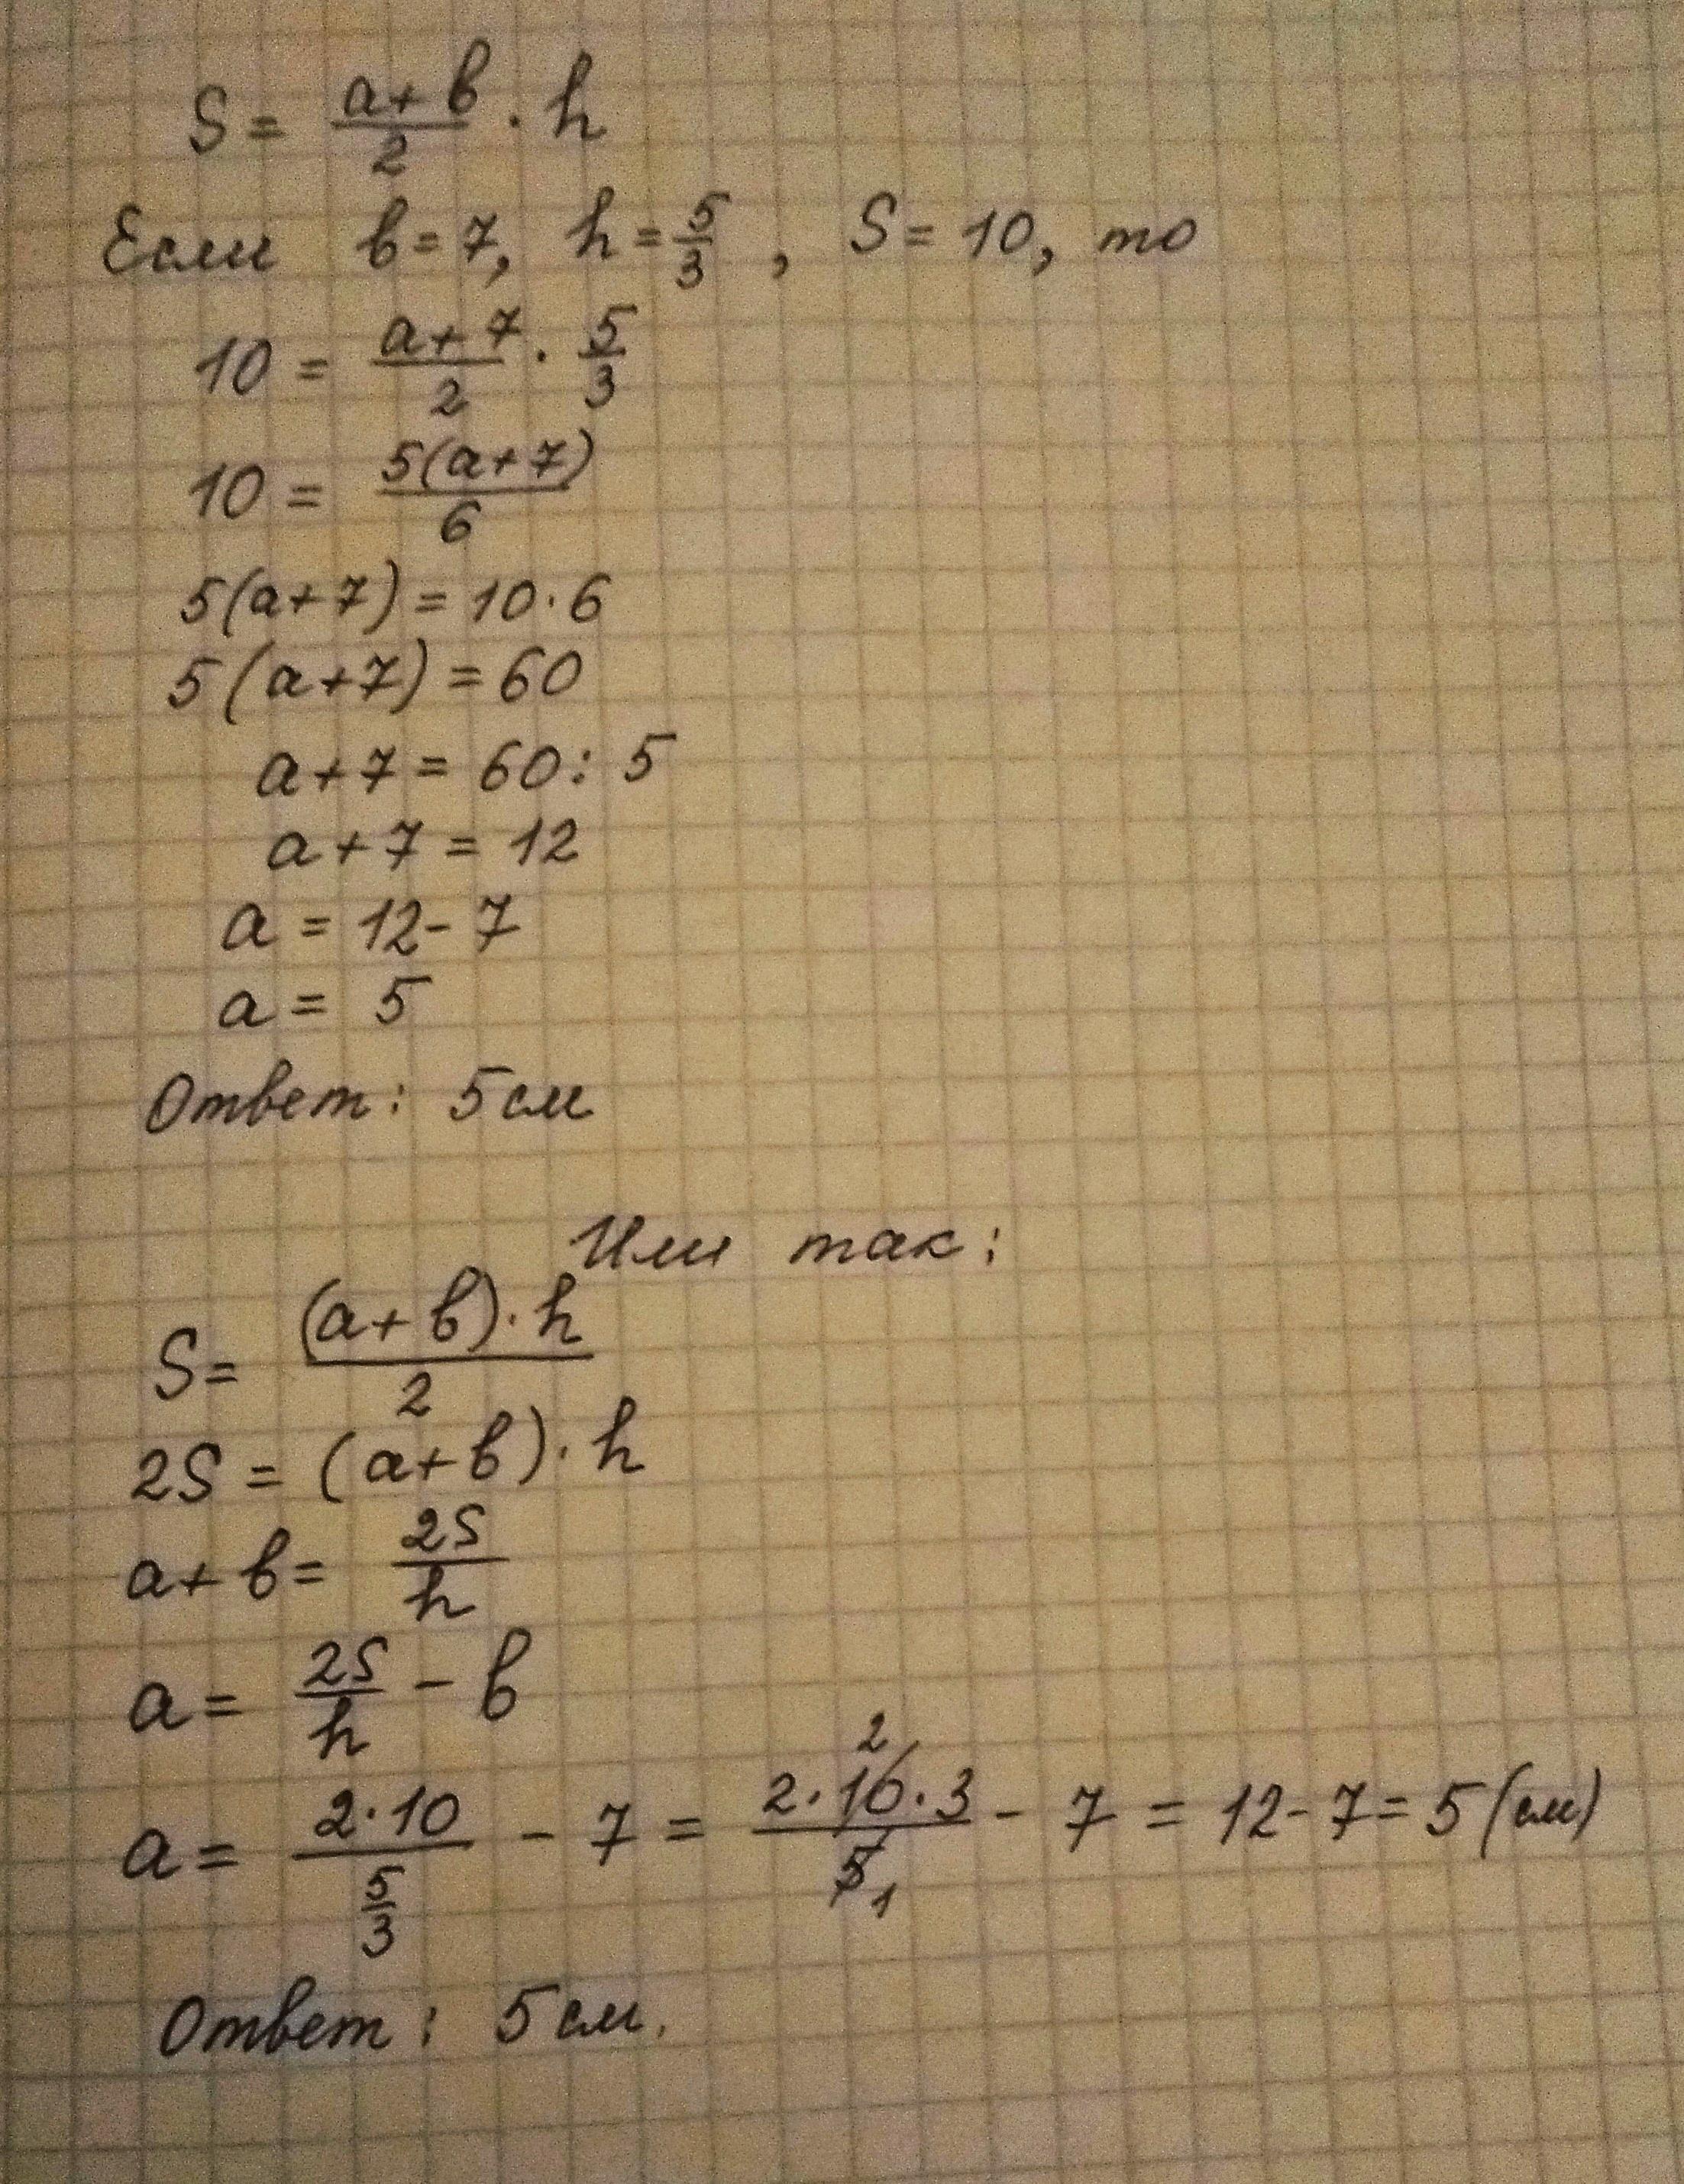 S = (a+b)/2 · h
Если b=7, h=5/3, S=10, то
10 = (a+7)/2 · 5/3
10 = 5(a+7)/6
5(a+7) = 10·6
5(a+7) = 60
a+7 = 60:5
a+7 = 12
a = 12-7
a = 5
Ответ: 5см
Или так:
S = (a+b)·h/2
2S = (a+b)·h
a+b = 2S/h
a = 2S/h - b
a = 2·10/(5/3) - 7 = 2·10·3/5 - 7 = 12-7 = 5(см)
Ответ: 5см.